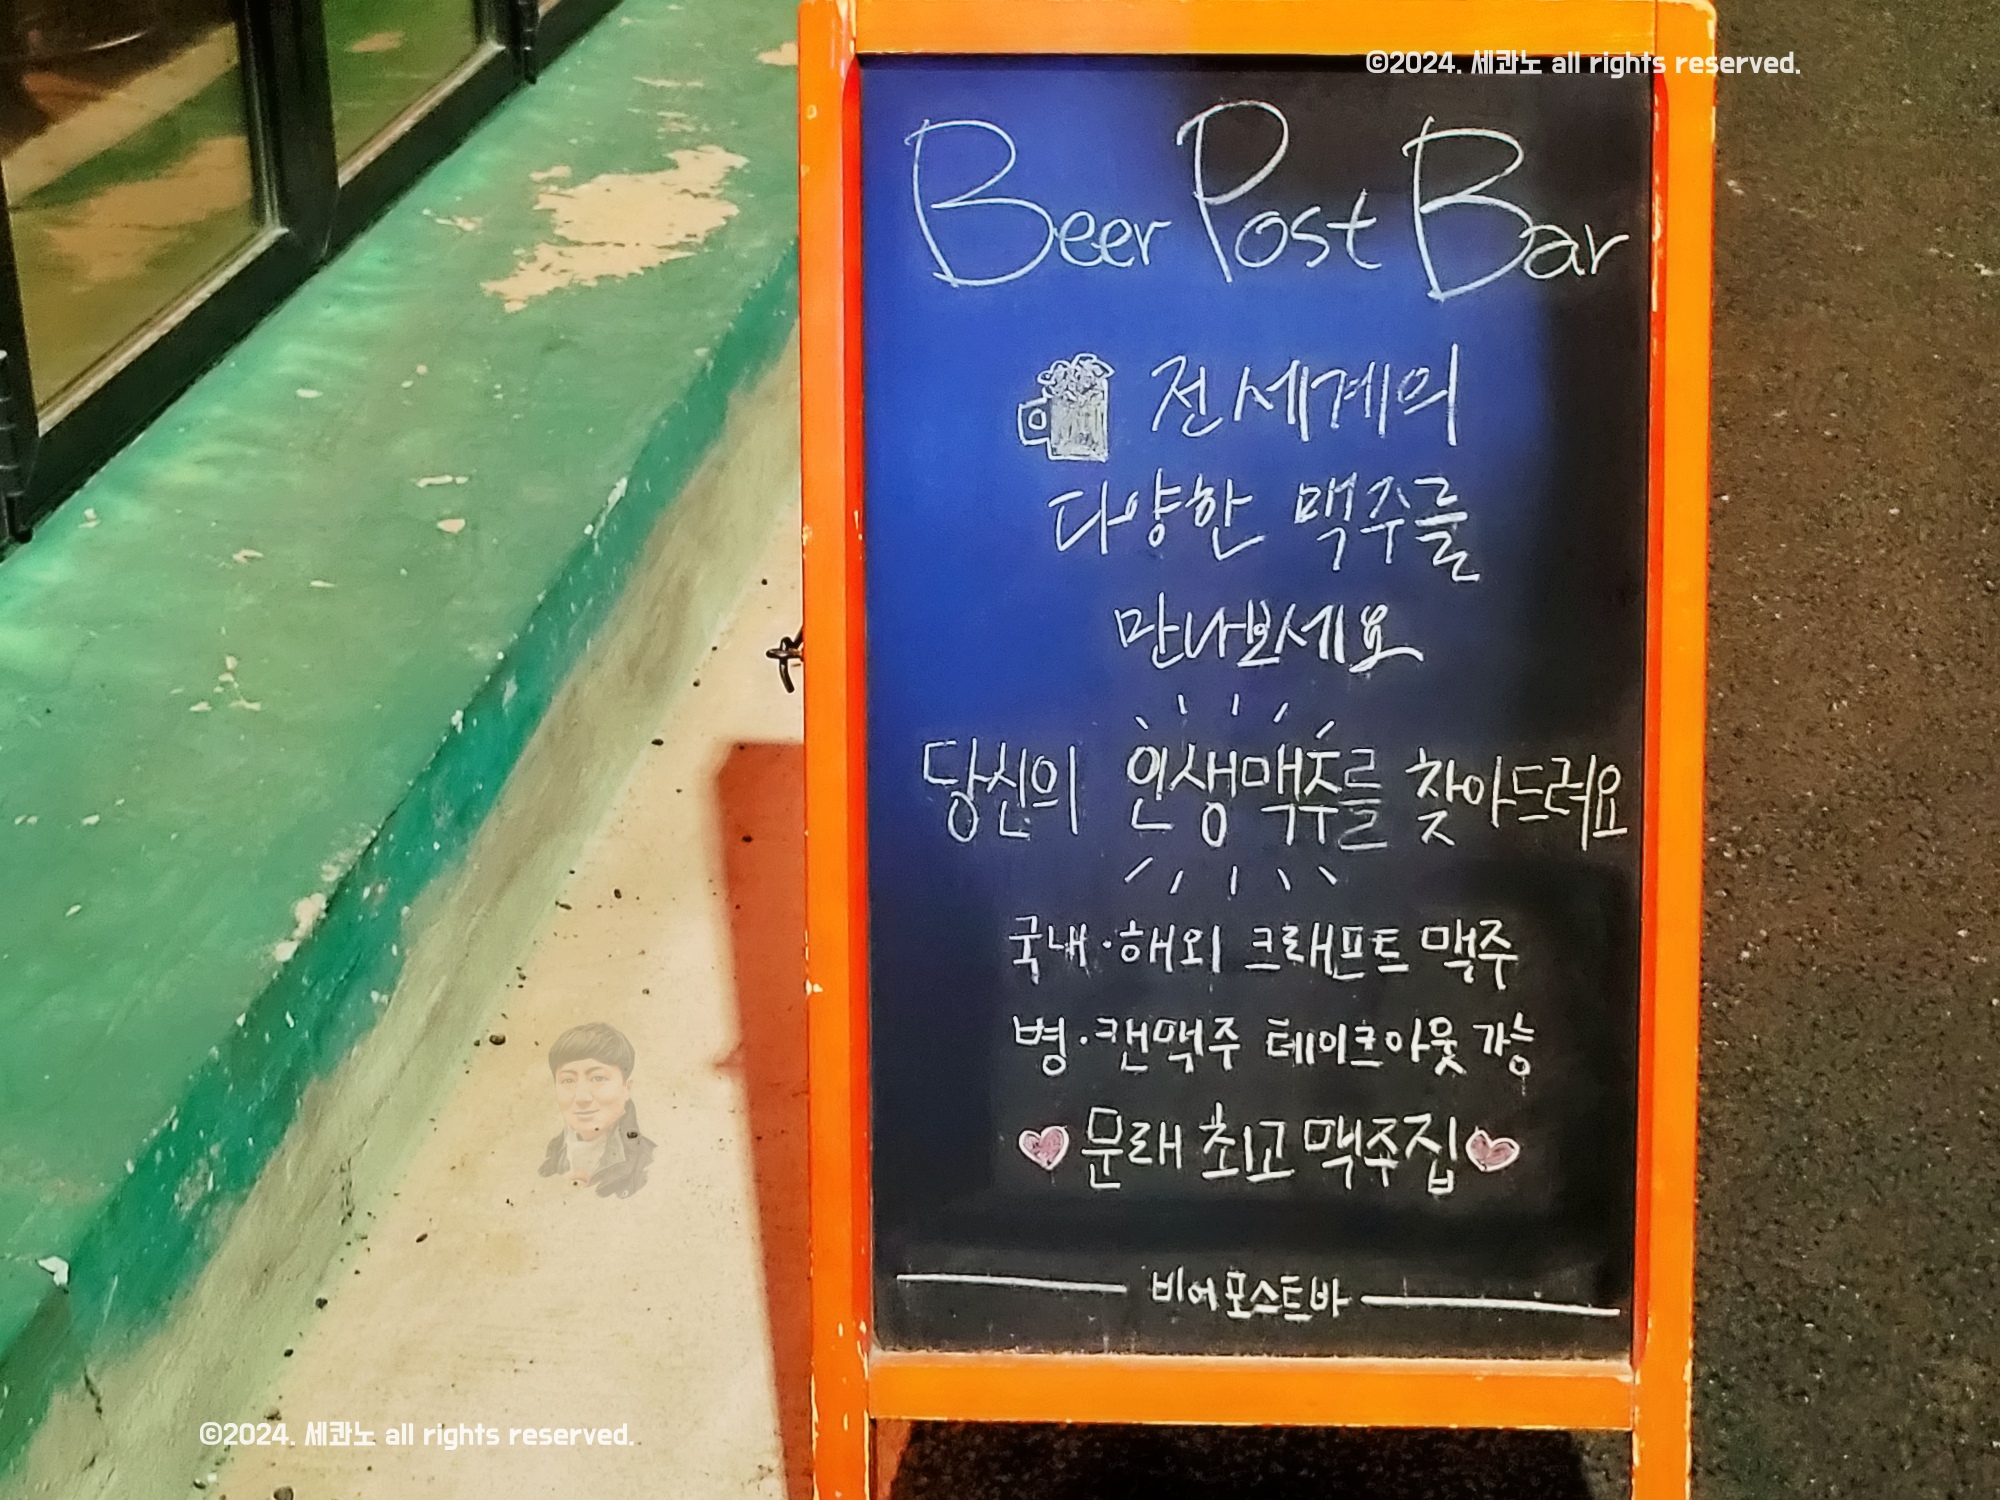 ©2024. 세콴노 all rights reserved.
Beer Post Bar
전세계의
다양한 맥주를
만나보세요
당신의 인생맥주를 찾아드려요
국내·해외 크래프트 맥주
병·캔맥주 테이크아웃 가능
문래 최고 맥주집
비어포스트바
©2024. 세콴노 all rights reserved.